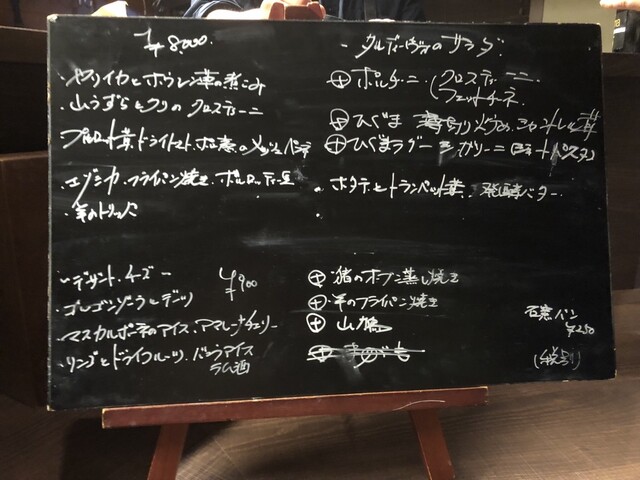 ¥8000.
・ヤリイカとホウレン草の煮こみ
・山うずらとクリのクロスティーニ
ドライトマト
・エゾシカ フライパン焼き ボルロッティ豆
・羊のトリッパ
ーデザート、チーズー
¥900
・ゴルゴンゾーラとデーツ
・マスカルポーネのアイス、アマレーナチェリー
・リンゴとドライフルーツ、バニラアイス
ラム酒
・タルディーヴォのサラダ
⊕ ポルチーニ (クロスティーニ
フェットチーネ
⊕ ひぐま 薄切り
⊕ ひぐまラグー
・ホタテとトランペット茸、発酵バター
⊕ 猪のオーブン蒸し焼き
⊕ 羊のフライパン焼き
⊕ 山鳩
石窯パン
¥250
(税別)